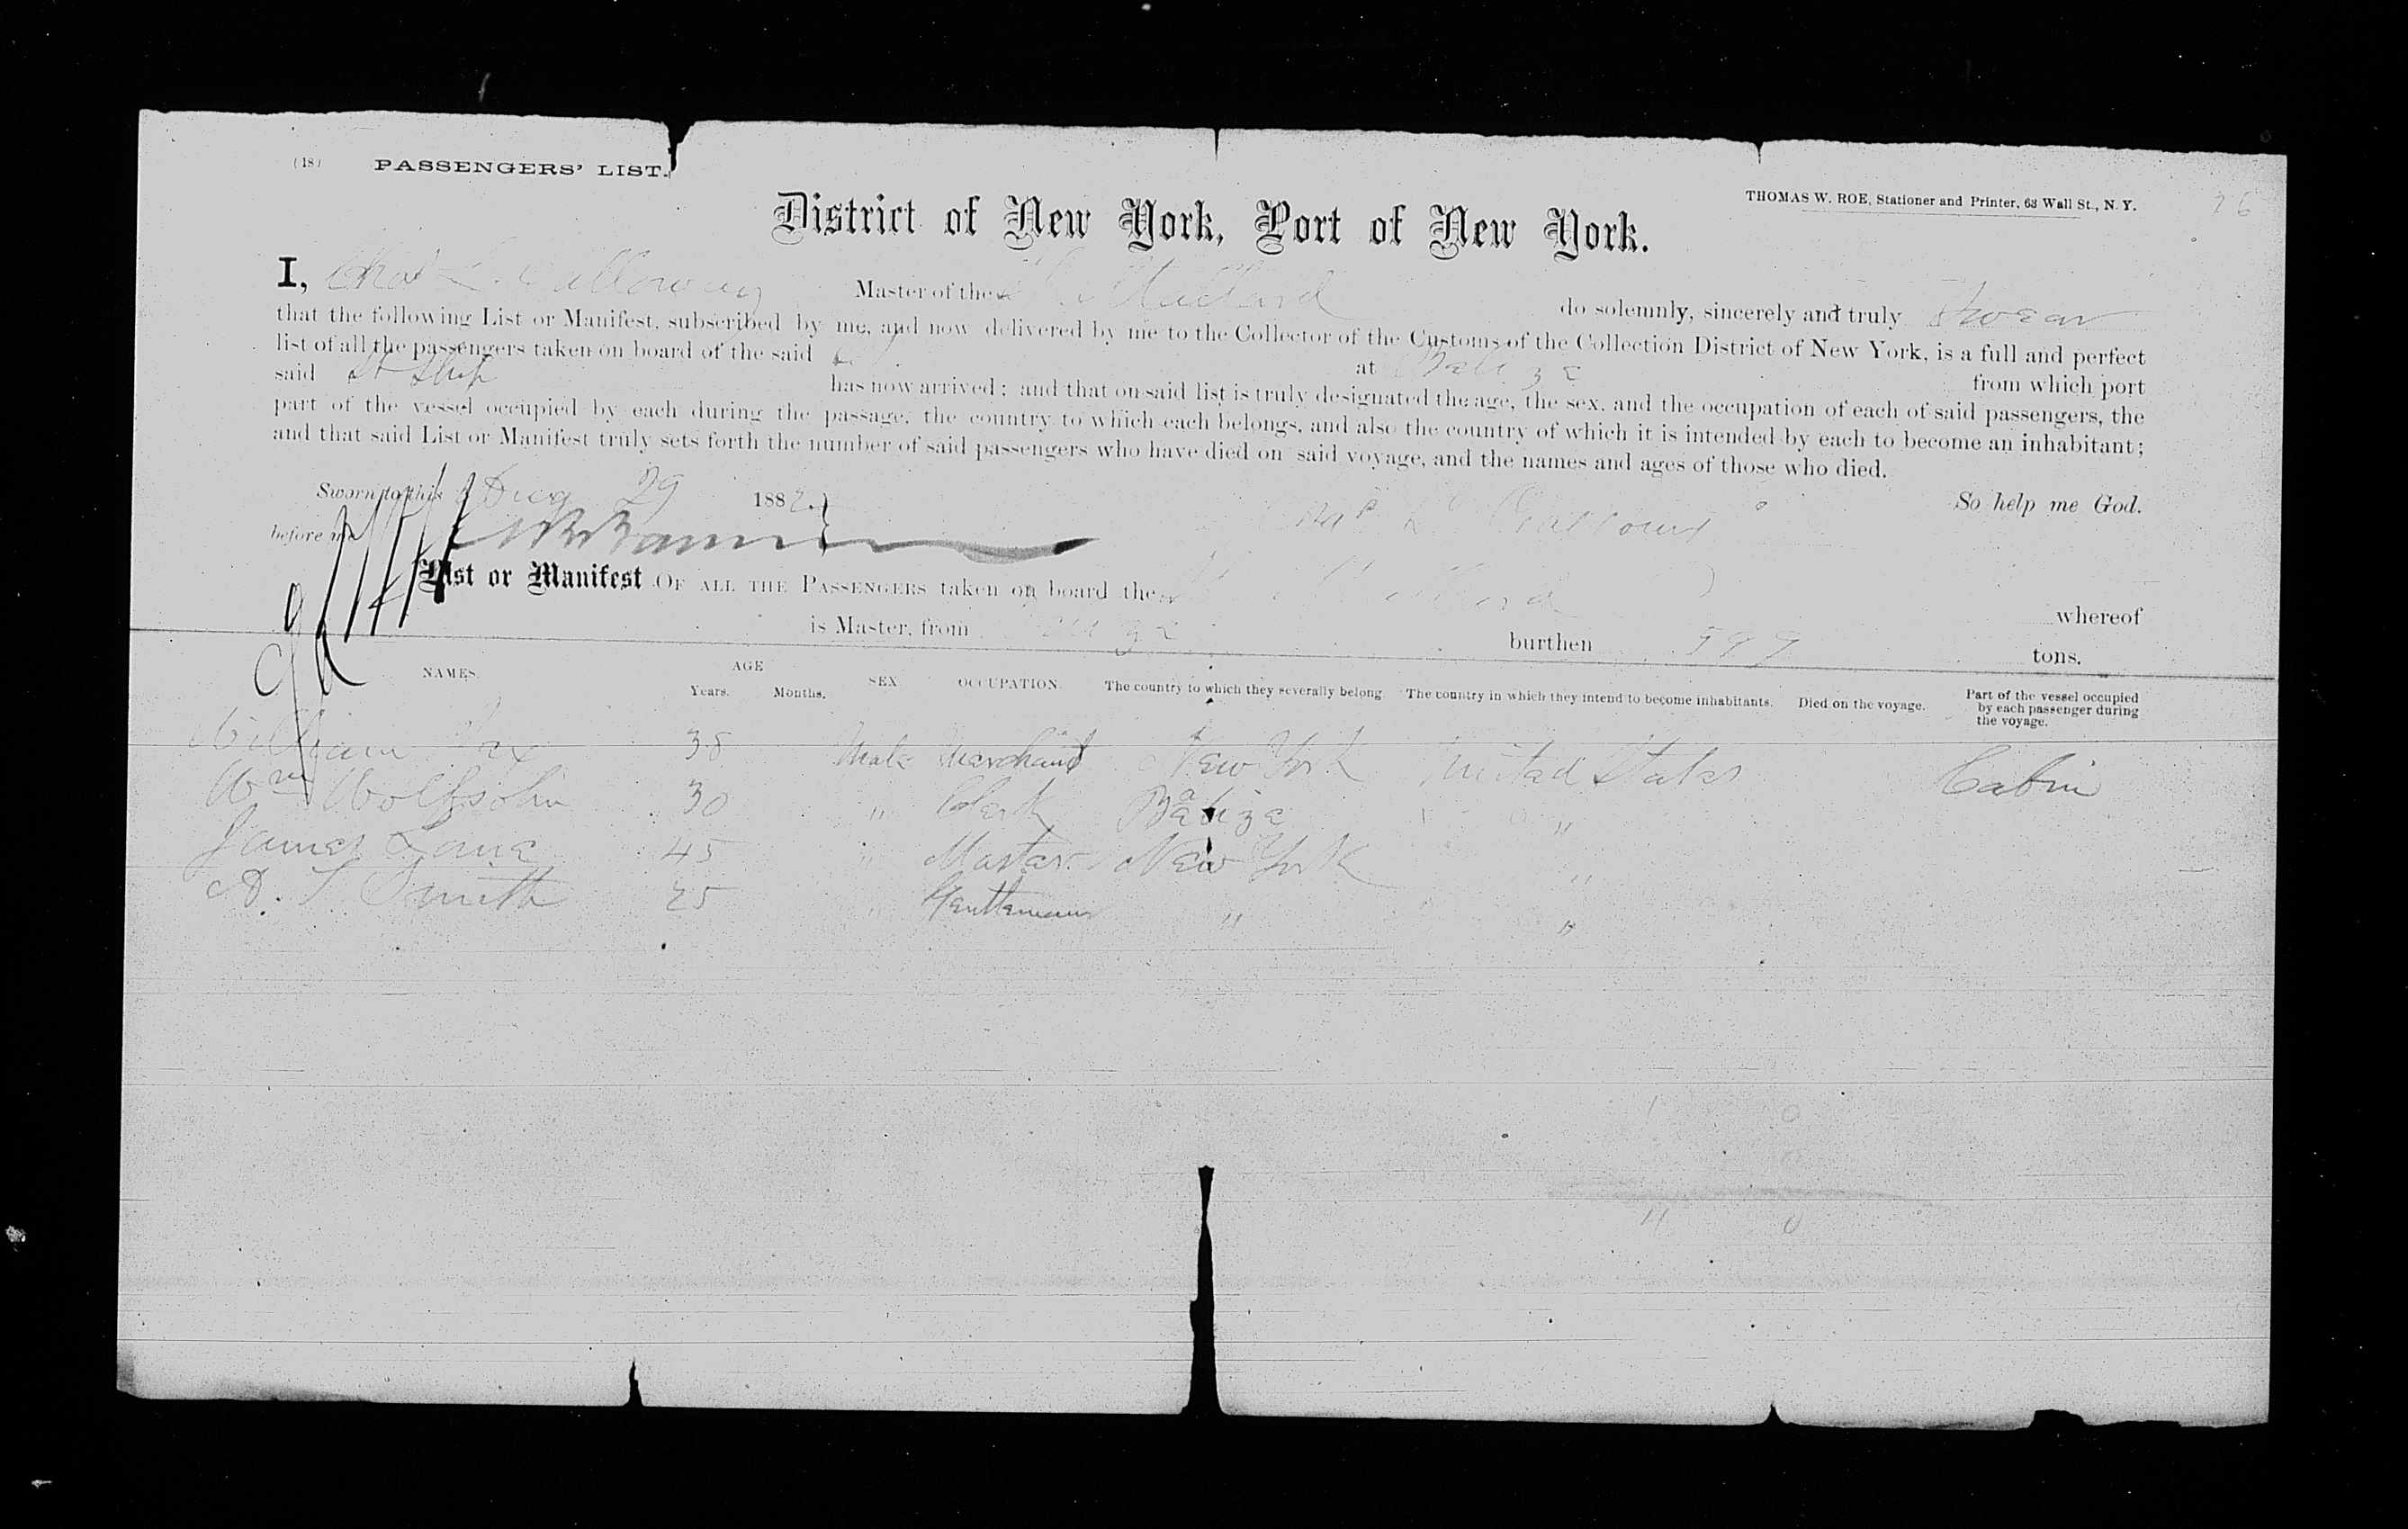 (18) PASSENGERS' LIST.
THOMAS W. ROE, Stationer and Printer, 63 Wall St., N. Y.
26
District of New York, Port of New York.
I, Chas L. Master of the do solemnly, sincerely and truly swear
that the following List or Manifest, subscribed by me, and now delivered by me to the Collector of the Customs of the Collection District of New York, is a full and perfect
list of all the passengers taken on board of the said at from which port
said St Ship has now arrived; and that on said list is truly designated the age, the sex, and the occupation of each of said passengers, the
part of the vessel occupied by each during the passage, the country to which each belongs, and also the country of which it is intended by each to become an inhabitant;
and that said List or Manifest truly sets forth the number of said passengers who have died on said voyage, and the names and ages of those who died.
So help me God.
Sworn to this Aug 29 1882.
before me
List or Manifest OF ALL THE PASSENGERS taken on board the whereof
is Master, from burthen tons.
NAMES. AGE Years. Months. SEX OCCUPATION. The country to which they severally belong. The country in which they intend to become inhabitants. Died on the voyage. Part of the vessel occupied by each passenger during the voyage.
William 38 Male Merchant New York United States Cabin
Wm Wolfsohn 30 " Clerk Balize "
James Lane 45 " Master New York "
A. T. Smith 25 " Gentleman " "
1 0
4 0